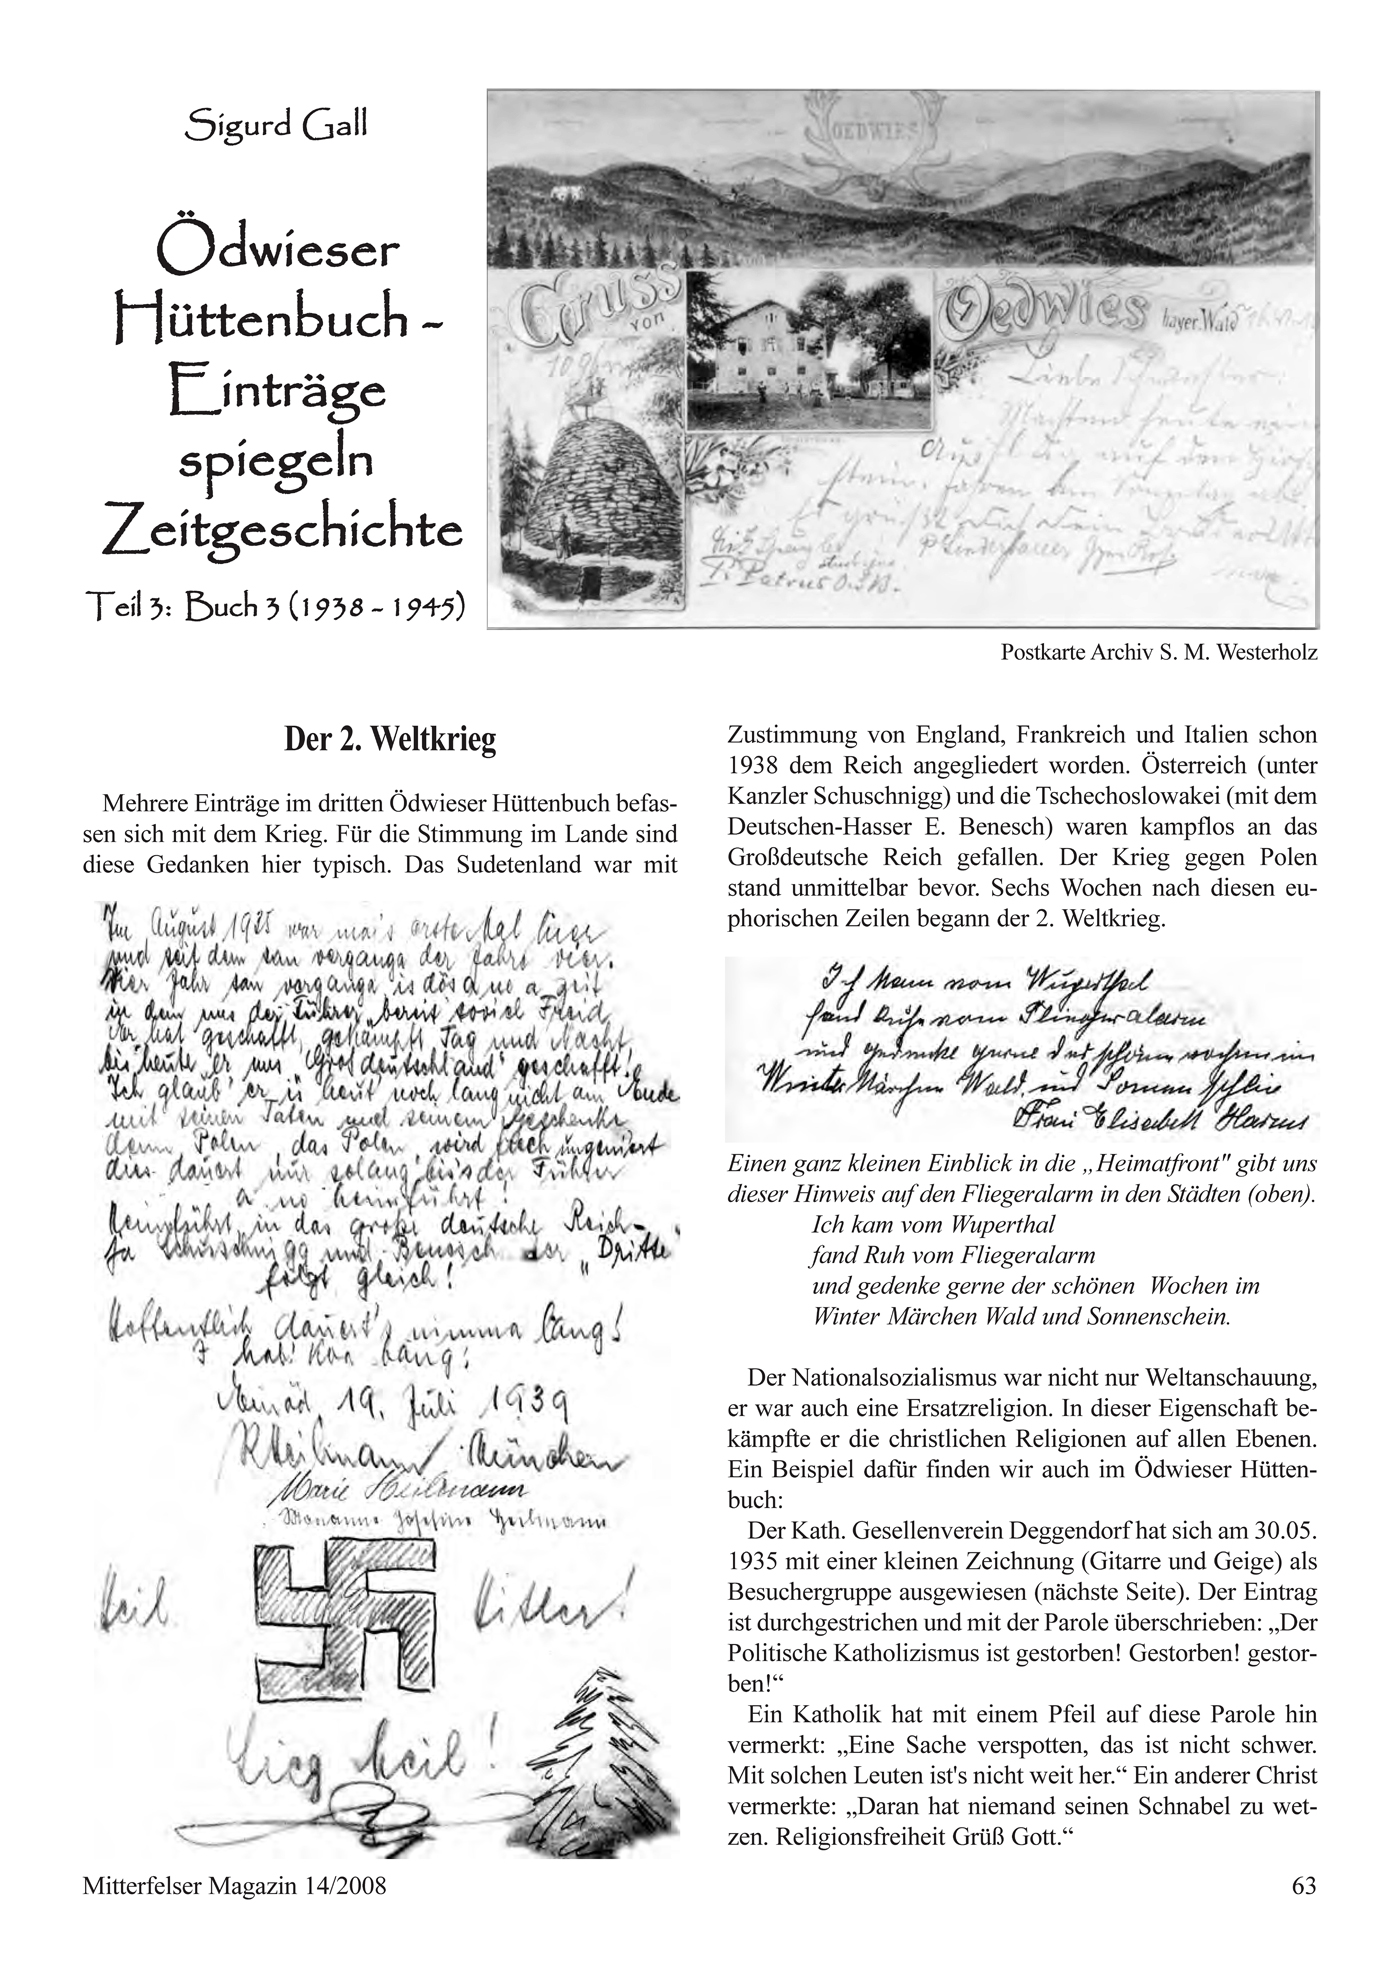 Sigurd Gall
Ödwieser
Hüttenbuch -
Einträge
spiegeln
Zeitgeschichte
Teil 3: Buch 3 (1938 - 1945)
OEDWIES
Gruss
von
Oedwies
bayer. Wald
Liebe Schwester!
Machten heute ein
Ausflug auf den Hirsch
stein. fahren am Sonntag
Es grüßt Dich Dein Bruder
P. Petrus O.S.B.
Postkarte Archiv S. M. Westerholz
Der 2. Weltkrieg
Mehrere Einträge im dritten Ödwieser Hüttenbuch befas-
sen sich mit dem Krieg. Für die Stimmung im Lande sind
diese Gedanken hier typisch. Das Sudetenland war mit
Im August 1935 war mai's erste Mal hier
und seit dem san verganga der Jahre vier.
Vier Jahr san verganga is dös a no a Zeit
in dem uns der Führer bereit' soviel Freid,
Der hat geschafft, gekämpft Tag und Nacht
bis heute er uns "Großdeutschland" geschafft!
Ich glaub' er is heut noch lang nicht am Ende
mit seinen Taten und seinem Geschenke
denn Polen, das Polen, wird frech ungeniert
dies dauert nur solang bis's der Führer
a no heimführt!
Heimführt in das große deutsche Reich -
Ja Schuschnigg und Benesch der "Dritte"
folgt gleich!
Hoffentlich dauert's nimma lang!
I hab' koa bang!
Einöd, 19. Juli 1939
R Heilmann München
Marie Heilmann
Marianne Josefine Heilmann
Heil Hitler!
Sieg Heil!
Zustimmung von England, Frankreich und Italien schon
1938 dem Reich angegliedert worden. Österreich (unter
Kanzler Schuschnigg) und die Tschechoslowakei (mit dem
Deutschen-Hasser E. Benesch) waren kampflos an das
Großdeutsche Reich gefallen. Der Krieg gegen Polen
stand unmittelbar bevor. Sechs Wochen nach diesen eu-
phorischen Zeilen begann der 2. Weltkrieg.
Ich kam vom Wuperthal
fand Ruhe vom Fliegeralarm
und gedenke gerne der schönen wochen im
Winter Märchen Wald und Sonnenschein
Frau Elisabeth
Einen ganz kleinen Einblick in die „Heimatfront" gibt uns
dieser Hinweis auf den Fliegeralarm in den Städten (oben).
Ich kam vom Wuperthal
fand Ruh vom Fliegeralarm
und gedenke gerne der schönen Wochen im
Winter Märchen Wald und Sonnenschein.
Der Nationalsozialismus war nicht nur Weltanschauung,
er war auch eine Ersatzreligion. In dieser Eigenschaft be-
kämpfte er die christlichen Religionen auf allen Ebenen.
Ein Beispiel dafür finden wir auch im Ödwieser Hütten-
buch:
Der Kath. Gesellenverein Deggendorf hat sich am 30.05.
1935 mit einer kleinen Zeichnung (Gitarre und Geige) als
Besuchergruppe ausgewiesen (nächste Seite). Der Eintrag
ist durchgestrichen und mit der Parole überschrieben: „Der
Politische Katholizismus ist gestorben! Gestorben! gestor-
ben!“
Ein Katholik hat mit einem Pfeil auf diese Parole hin
vermerkt: „Eine Sache verspotten, das ist nicht schwer.
Mit solchen Leuten ist's nicht weit her.“ Ein anderer Christ
vermerkte: „Daran hat niemand seinen Schnabel zu wet-
zen. Religionsfreiheit Grüß Gott.“
Mitterfelser Magazin 14/2008
63